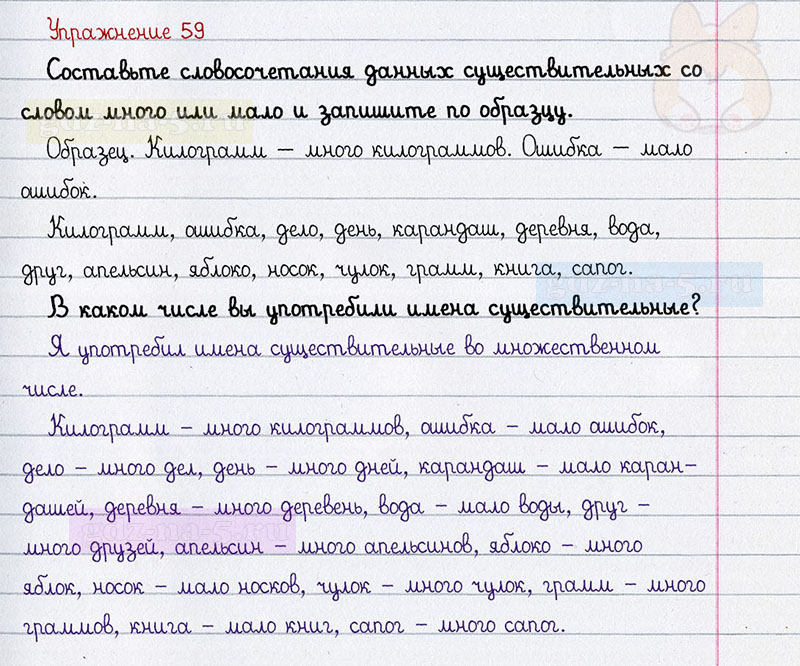 Упражнение 59
Составьте словосочетания данных существительных со
словом много или мало и запишите по образцу.
Образец. Килограмм – много килограммов. Ошибка – мало
ошибок.
Килограмм, ошибка, дело, день, карандаш, деревня, вода,
друг, апельсин, яблоко, носок, чулок, грамм, книга, сапог.
В каком числе вы употребили имена существительные?
Я употребил имена существительные во множественном
числе.
Килограмм – много килограммов, ошибка – мало ошибок,
дело – много дел, день – много дней, карандаш – мало каран-
дашей, деревня – много деревень, вода – мало воды, друг –
много друзей, апельсин – много апельсинов, яблоко – много
яблок, носок – мало носков, чулок – много чулок, грамм – много
граммов, книга – мало книг, сапог – много сапог.